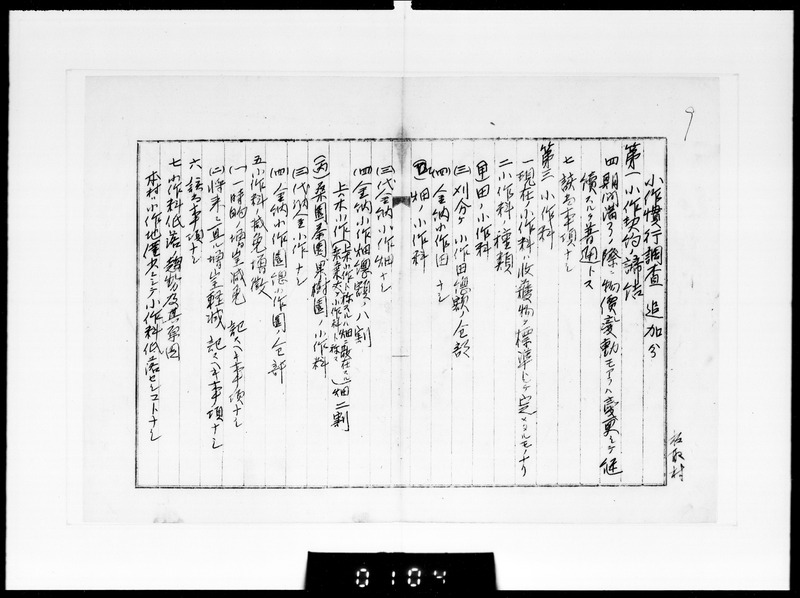 小作慣行調査 追加分
第一 小作契約ノ締結
四 期間満了ノ際ニ物價変動モアラハ変更シテ継
續スルヲ普通トス
七 該当事項ナシ
第三 小作料
一 現在小作料ハ收穫物ヲ標準トシテ定メタルモノナリ
二 小作料ノ種類
(甲) 田ノ小作料
(三) 刈分ケ小作田總額ノ全部
(四) 金納小作田 ナシ
(乙) 畑ノ小作料
(三) 代金納小作畑ナシ
(四) 金納小作畑總額ノ八割
上木小作 畑二割
(丙) 桑園茶園果樹園ノ小作料
(三) 代納金小作ナシ
(四) 金納小作園總小作園全部
五 小作料ノ減免増徴
(一) 一時的ノ増徴減免 記スヘキ事項ナシ
(二) 将来ニ亘ル増徴軽減 記スヘキ事項ナシ
六 該当事項ナシ
七 小作料低落ノ趨勢及其原因
本村ハ小作地僅少ニシテ小作料低落セシコトナシ
9
0104